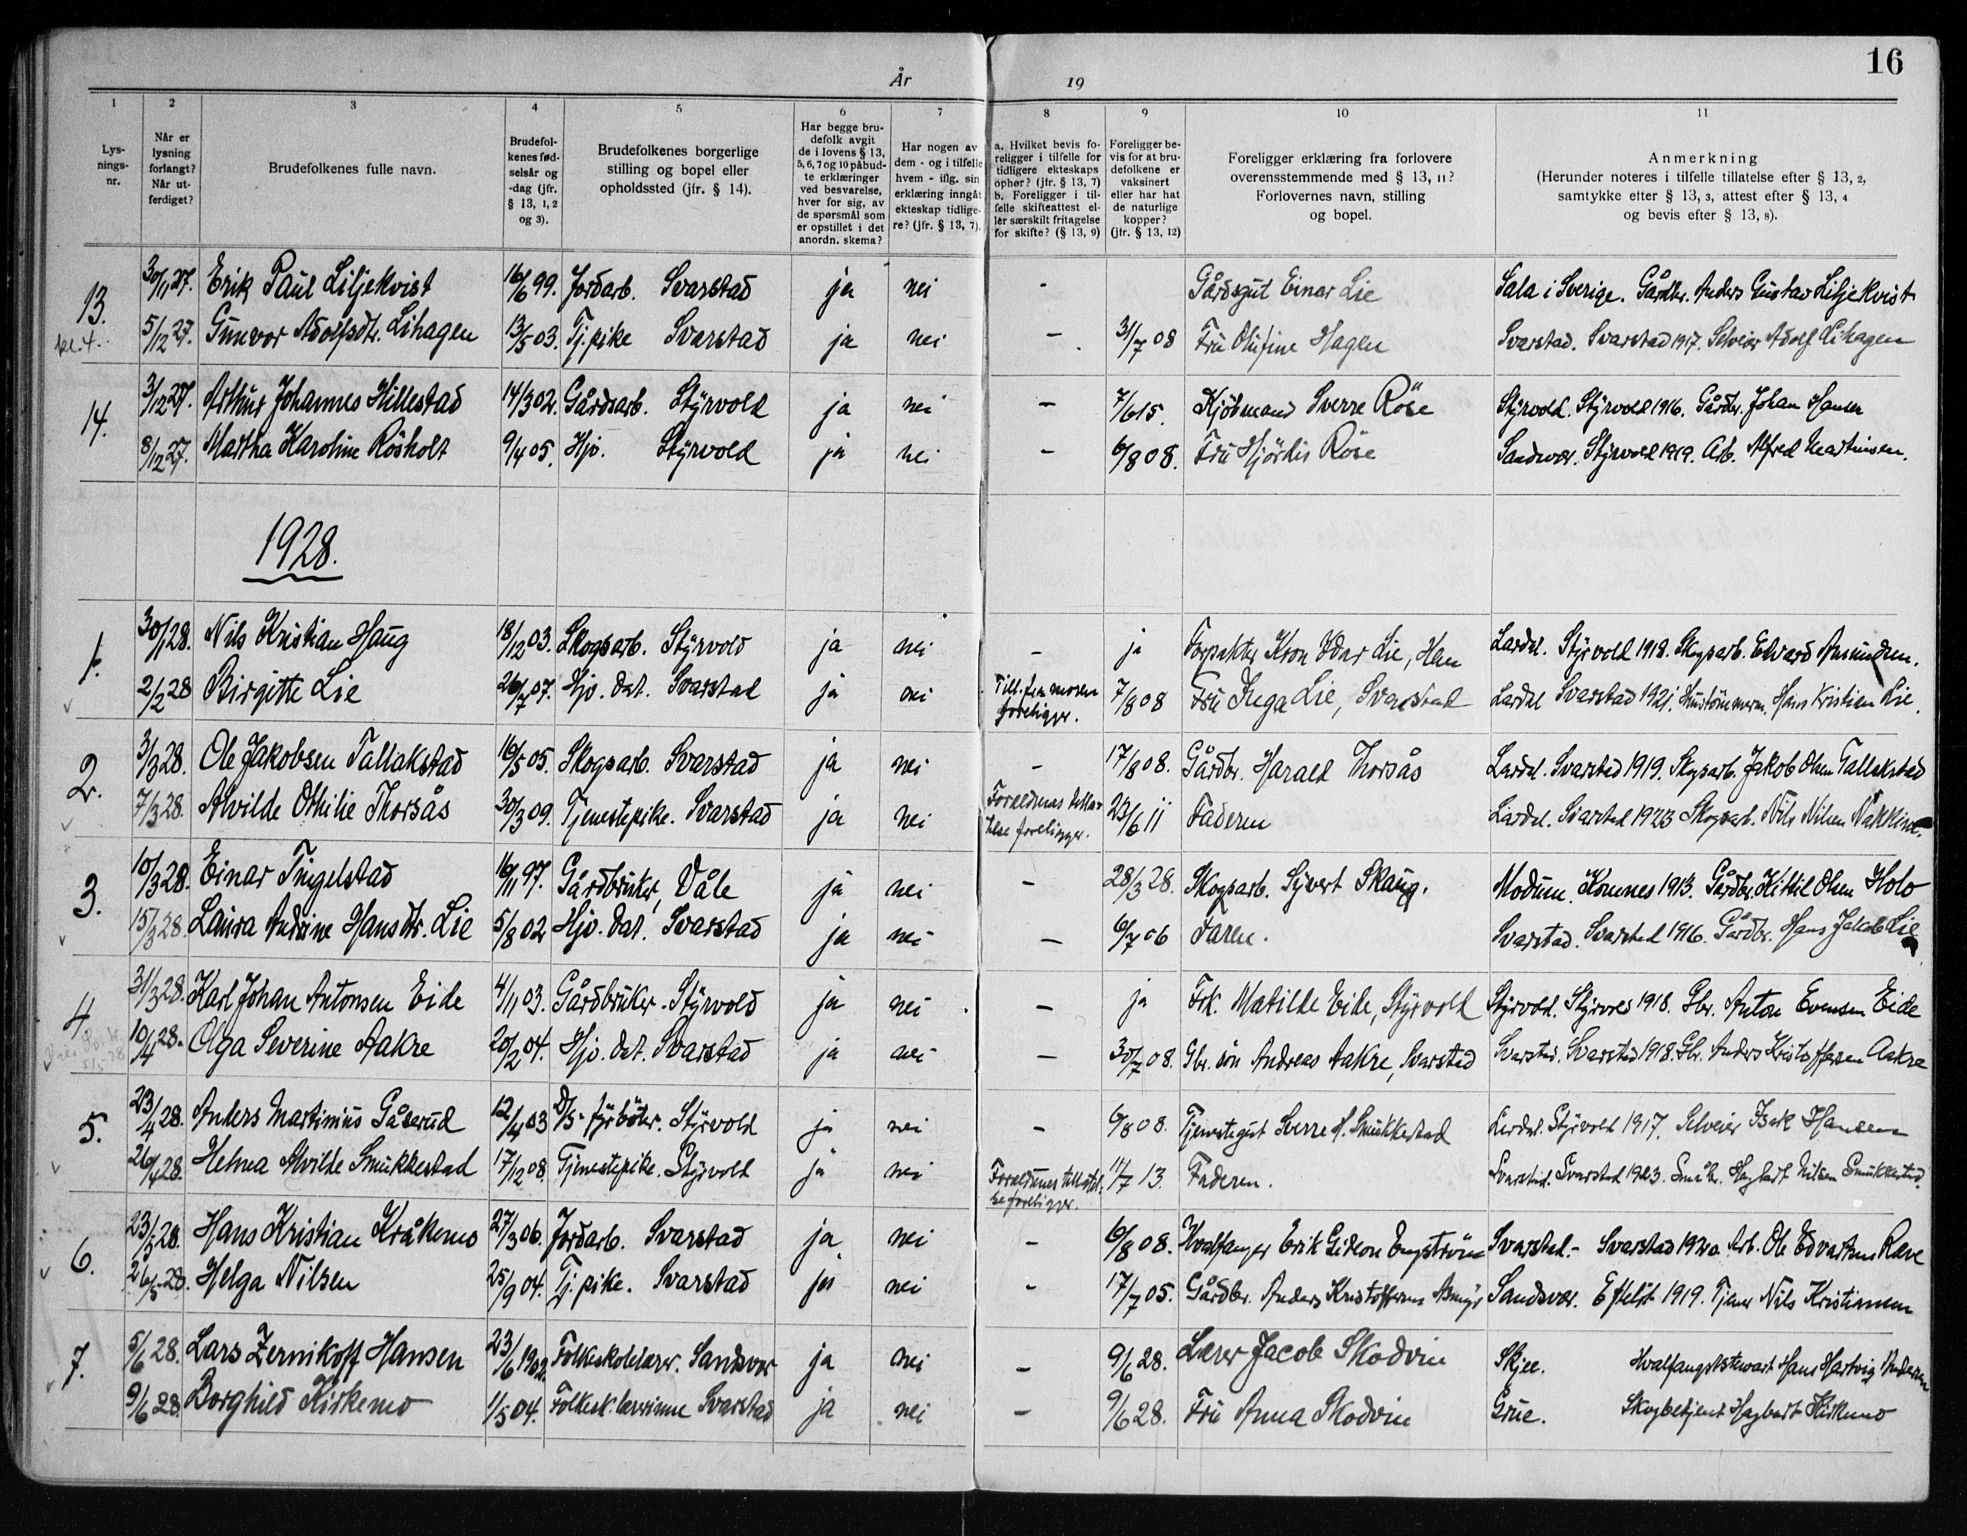 16
År 19
1 2 3 4 5 6 7 8 9 10 11
Lys-
nings-
nr.
Når er
lysning
forlangt?
Når ut-
ferdiget?
Brudefolkenes fulle navn.
Brudefol-
kenes fød-
selsår og
-dag (jfr.
§ 13, 1, 2
og 3).
Brudefolkenes borgerlige
stilling og bopel eller
opholdssted (jfr. § 14).
Har begge bru-
defolk avgit
de i lovens § 13,
5, 6, 7 og 10 påbud-
te erklæringer
ved besvarelse,
hver for sig, av
de spørsmål som
er opstillet i det
anordn. skema?
Har nogen av
dem - og i tilfelle
hvem - iflg. sin
erklæring inngåt
ekteskap tidlige-
re? (jfr. § 13, 7).
a. Hvilket bevis fo-
religger i tilfelle for
tidligere ekteskaps
ophør? (jfr. § 13, 7)
b. Foreligger i til-
felle skifteattest el-
ler særskilt fritagelse
for skifte? (§ 13, 9)
Foreligger be-
vis for at bru-
defolkene er
vaksinert
eller har hat
de naturlige
kopper?
(jfr. § 13, 12)
Foreligger erklæring fra forlovere
overensstemmende med § 13, 11?
Forlovernes navn, stilling
og bopel.
Anmerkning
(Herunder noteres i tilfelle tillatelse efter § 13, 2,
samtykke efter § 13, 3, attest efter § 13, 4
og bevis efter § 13, 8).
13. 30/11 27. Erik Paul Liljekvist 16/6 99. Jordarb. Svarstad ja nei - Gårdsgut Einar Lie Sala i Sverige. Gårdbr. Anders Gustav Liljekvist
kl. 4. 5/12 27. Gunvor Adolfsdtr. Lihagen 13/5 03. Tj. pike Svarstad ja nei - 31/7 08 Fru Olufine Hagen Svarstad. Svarstad 1917. Selveier Adolf Lihagen
14. 3/12 27. Arthur Johannes Hillestad 14/3 02. Gårdsarb. Styrvold ja nei - 7/6 15. Kjøbmand Sverre Röse Styrvold. Styrvold 1916. Gårdbr. Johan Hansen
8/12 27. Martha Karoline Rösholt 9/4 05. Hjv. Styrvold ja nei - 6/8 08. Fru Hjördis Röse Sandsvær. Styrvold 1919. Arb. Alfred Martinsen.
1928.
1. 30/1 28. Nils Kristian Haug 18/12 03. Skogsarb. Styrvold ja nei - ja Forpakter Kron Odar Lie, Hem Lardal. Styrvold 1918. Skogsarb. Edvard Amundsen.
2/2 28 Birgitte Lie 26/7 07. Hjv. dat. Svarstad ja nei Till. fra moren
foreligger. 7/8 08 Fru Inga Lie, Svarstad Lardal Svarstad 1921. Hustömmerm. Hans Kristian Lie.
2. 3/3 28. Ole Jakobsen Tallakstad 16/5 05. Skogsarb. Svarstad ja nei - 17/8 08. Gårdbr. Harald Thorsås Lardal. Svarstad 1919. Skogsarb. Jakob Olsen Tallakstad
7/3 28. Alvilde Othilie Thorsås 30/3 09. Tjenestepike. Svarstad ja nei Foreldrenes tilla-
telse foreligger. 23/6 11 Faderen Lardal. Svarstad 1923 Skogsarb. Nils Nilsen
3. 10/3 28. Einar Tingelstad 16/11 97. Gårdbruker, Våle ja nei - 28/3 28. Skogsarb. Syvert Skaug. Modum. Komnes 1913. Gårdbr. Kittil Olsen Holo
15/3 28. Laura Andrine Hansdtr. Lie 5/8 02 Hjv. dat. Svarstad ja nei - 6/7 06 Faren. Svarstad. Svarstad 1916. Gårdbr. Hans Jakob Lie
4. 31/3 28. Karl Johan Antonsen Eide 4/11 03. Gårdbruker. Styrvold ja nei - ja Frk. Matilde Eide, Styrvold Styrvold. Styrvold 1918. Gbr. Anton Evensen Eide
10/4 28. Olga Severine Aakre 20/2 04. Hjv. dat. Svarstad ja nei - 30/7 08. Gbr. sön Andreas Aakre, Svarstad Svarstad. Svarstad 1918. Gbr. Anders Kristoffersen Aakre
5. 23/4 28. Anders Martinius Gåserud 12/4 03 D/S-fyrböter. Styrvold ja nei - 6/8 08. Tjenestegut Sverre H. Smukkestad Lardal. Styrvold 1917. Selveier Isak Hansen
26/4 28. Helma Alvilde Smukkestad 17/12 08. Tjenestepike. Styrvold ja nei Foreldrenes tillatel-
se foreligger. 11/7 13. Faderen. Svarstad. Svarstad 1923. Småbr. Hagbart Nilsen Smukkestad.
6. 23/5 28. Hans Kristian Kråkemo 27/3 06. Jordarb. Svarstad ja nei - 6/8 08. Hvalfanger Erik Gideon Engström Svarstad. - Svarstad 1920. Arb. Ole Edvartsen Rave
26/5 28. Helga Nilsen 25/9 04. Tj. pike. Svarstad ja nei - 17/7 05. Gårdbr. Anders Kristoffersen Sandsvær. Efteløt 1919. Tjener Nils Kristiansen
7. 5/6 28. Lars Zernikoff Hansen 23/6 1902. Folkeskolelærer. Sandsvær ja nei - 9/6 28. Lærer Jacob Skodvin Skjee. Hvalfangststewart Hans Hartvig Andersen
9/6 28. Borghild Kirkemo 1/5 04. Folkesk. lærerinne Svarstad ja nei - 9/6 28. Fru Anna Skodvin Grue. Skogbetjent Hagbart Kirkemo